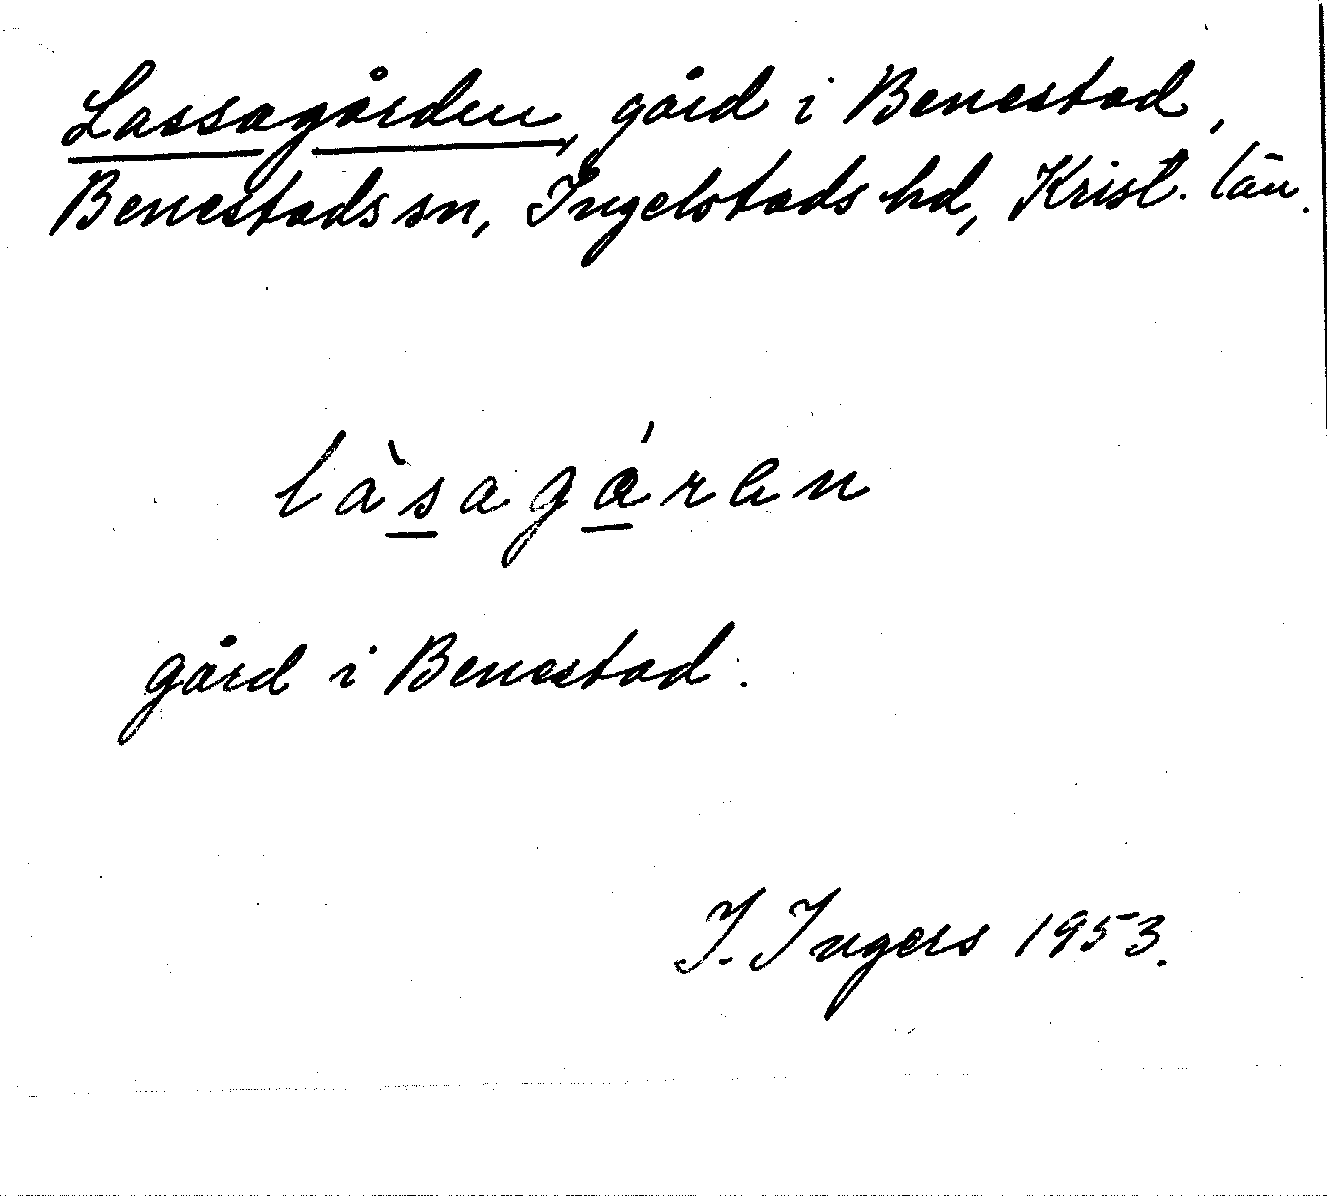 Lassagården, gård i Benestad,
Benestads sn, Ingelstads hd, Krist. län.
làsagáren
gård i Benestad.
I. Ingers 1953.